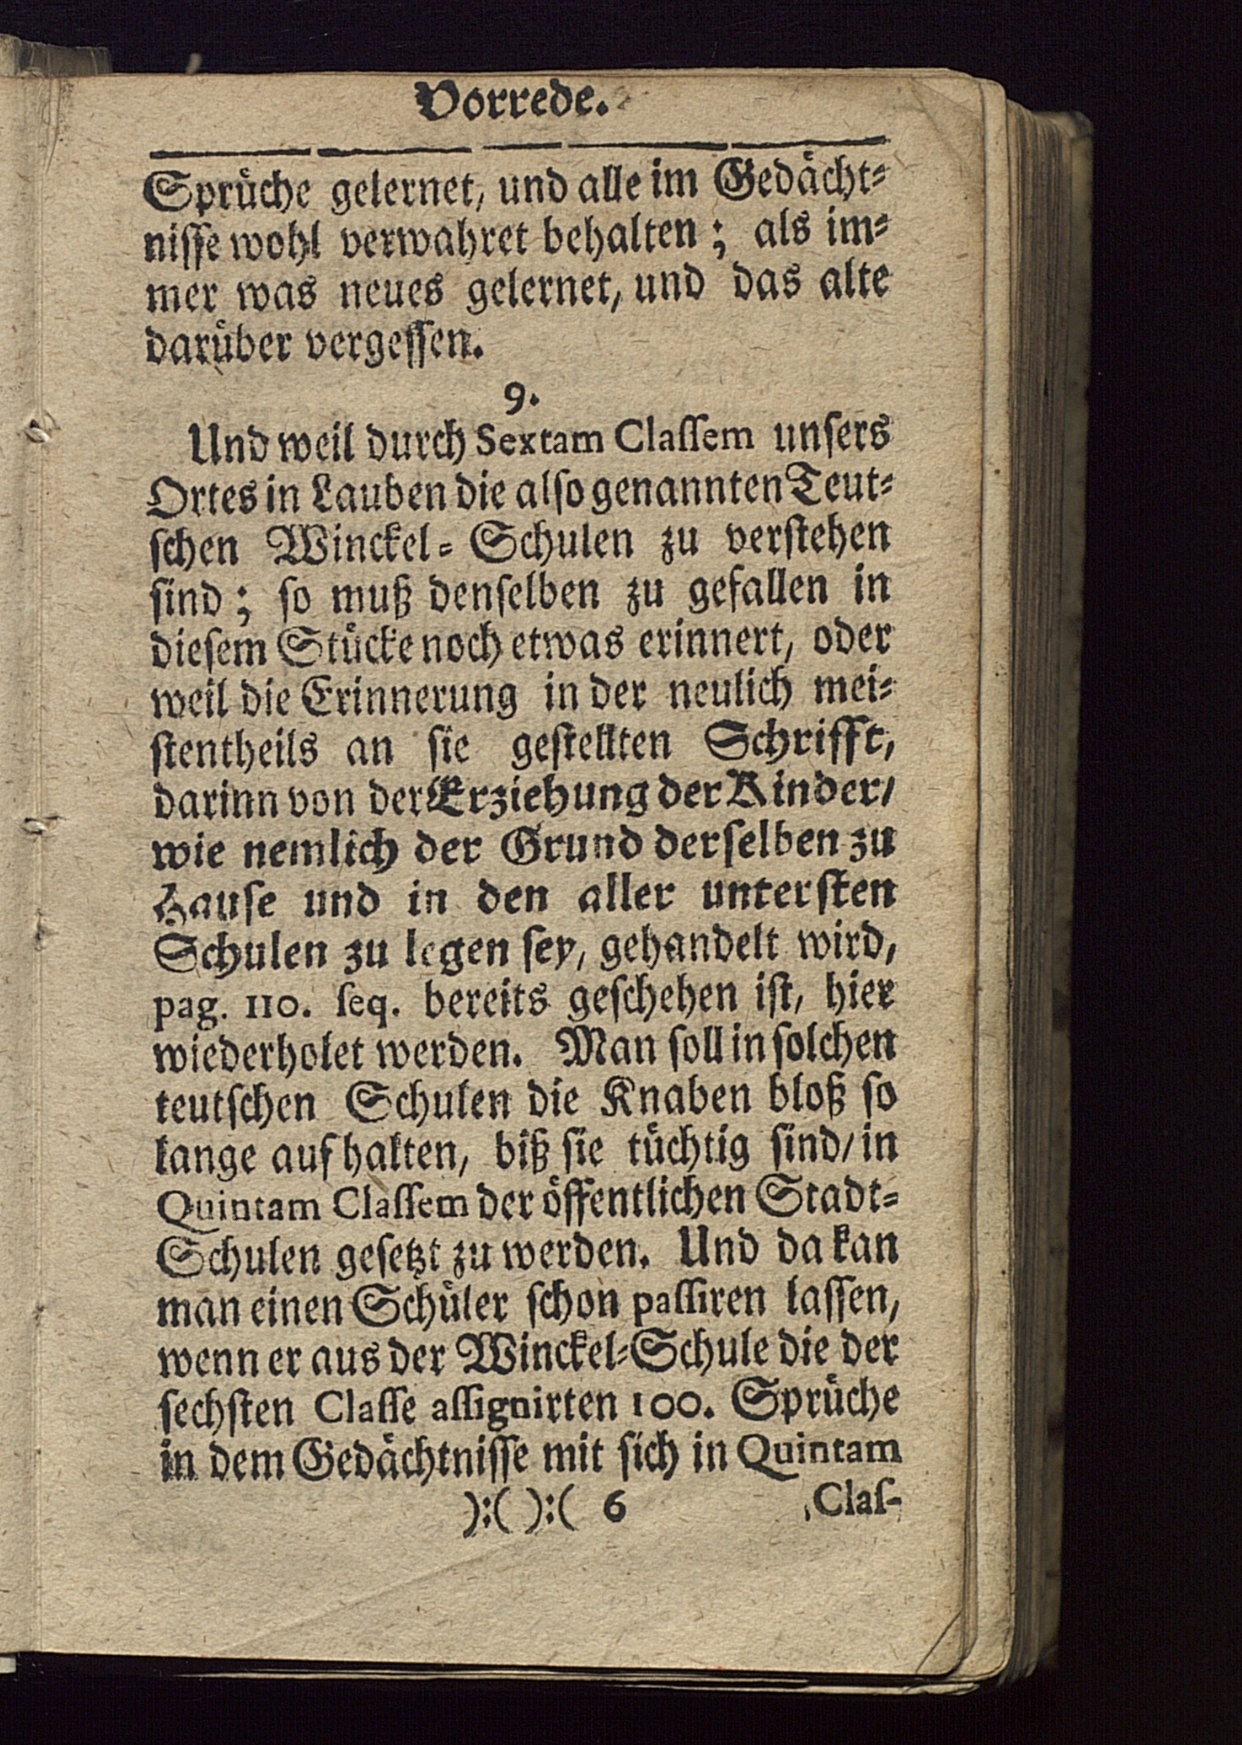 Vorrede.
Sprüche gelernet, und alle im Gedächt-
nisse wohl verwahret behalten; als im-
mer was neues gelernet, und das alte
darüber vergessen.
9.
Und weil durch Sextam Classem unsers
Ortes in Lauben die also genannten Teut-
schen Winckel-Schulen zu verstehen
sind; so muß denselben zu gefallen in
diesem Stücke noch etwas erinnert, oder
weil die Erinnerung in der neulich mei-
stentheils an sie gestellten Schrifft,
darinn von der Erziehung der Kinder/
wie nemlich der Grund derselben zu
Hause und in den aller untersten
Schulen zu legen sey, gehandelt wird,
pag. 110. seq. bereits geschehen ist, hier
wiederholet werden. Man soll in solchen
teutschen Schulen die Knaben bloß so
lange aufhalten, biß sie tüchtig sind/ in
Quintam Classem der öffentlichen Stadt-
Schulen gesetzt zu werden. Und da kan
man einen Schüler schon passiren lassen,
wenn er aus der Winckel-Schule die der
sechsten Classe assignirten 100. Sprüche
in dem Gedächtnisse mit sich in Quintam
):( ):( 6 Clas-